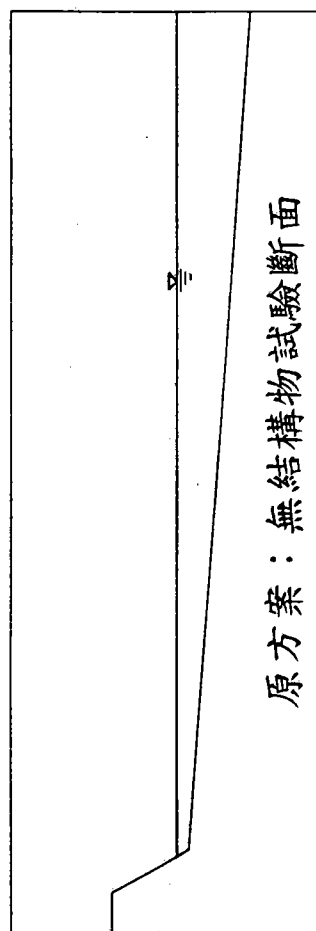 原方案：無結構物試驗斷面